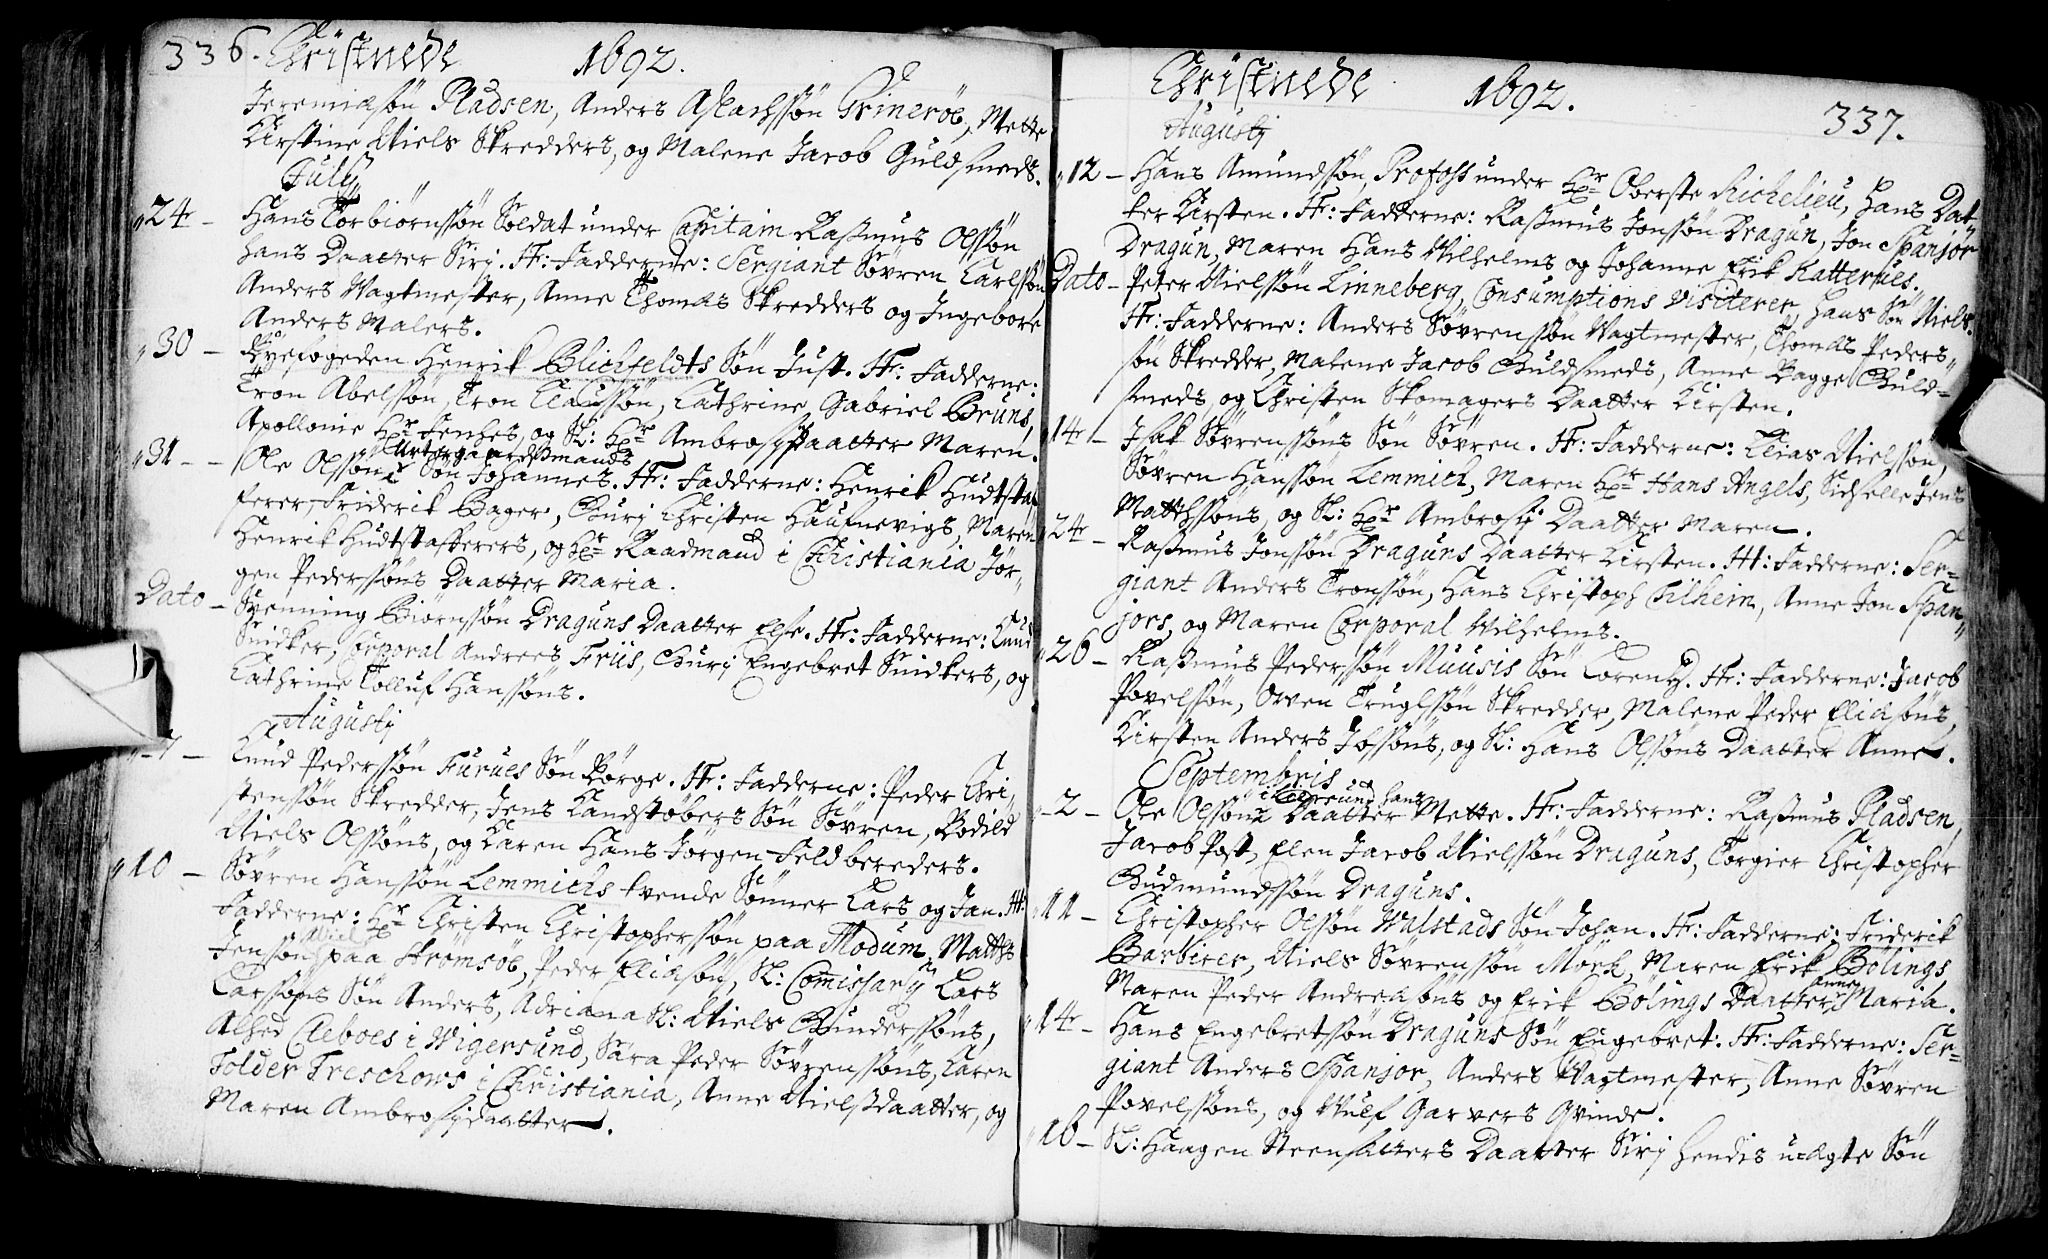 336. Christnede 1692.
Jeremiæsøn Pladsen, Anders Aslachsøn Grinerøe, Mette
Kirstine Niels Skredders, og Malene Jacob Guldsmeds.
July
24 - Hans Torbiørnssøn Soldat under Capitain Rasmus Olssøn
hans Daatter Siri. Ff: Fadderne: Sergiant Søvren Carlssøn
Anders Wagtmester, Anne Thomæs Skredders og Ingebore
Anders Malers.
30 - Byefogeden Henrik Blichfeldts Søn Just. Ff: Fadderne:
Tron Abelssøn, Tron Claussøn, Cathrine Gabriel Bruns,
Apollonie Hr Jenses, og Sl: Hr Ambrosij Daatter Maren.
Urtegaardsmands
31 - Ole Olssøns Søn Johannes. Ff: Fadderne: Henrik Hudtstaf
ferer, Friderik Bager, Guri Christen Haufnevigs, Maren
Henrik Hudtstafferers, og Hr Raadmand i Christiania Jør-
gen Pederssøns Daatter Maria.
Dato - Svenning Biørnssøn Draguns Daatter Else. Ff: Fadderne: Knud
Snidker, Corporal Andrees Friis, Guri Engebret Snidkers, og
Cathrine Tolluf Hanssøns.
Augustj
7 - Knud Pederssøn Furues Søn Børge. Ff: Fadderne: Peder Chri-
stenssøn Skredder, Jens Kandstøbers Søn Søvren, Bodild
Niels Olssøns, og Karen Hans Jørgen Feldbereders.
10 - Søvren Hanssøn Lemmichs tvende Sønner Lars og Jan. Ff:
Fadderne: Hr Christen Christopherssøn paa Modum, Matths
Jenssøn Wiel paa Strømsøe, Peder Eliæsøn, Sl: Comissary Lars
Larssøns Søn Anders, Adriana Sl: Niels Gunderssøns,
Alhed Cleboes i Wigersund, Sara Peder Søvrenssøns, Karen
Folder Treschows i Christiania, Anne Nielsdaatter, og
Maren Ambrosijdaatter.
Christnede 1692. 337.
Augustj
12 - Hans Amundssøn, Profoss under Hr Oberste Richelieu, hans Dat-
ter Kirsten. Ff: Fadderne: Rasmus Jonssøn Dragun, Jon Spanjor
Dragun, Maren Hans Wilhelms og Johanne Erik Katterues.
Dato - Peter Nielssøn Linneberg, Consumptions visiterer, hans Søn Niels.
Ff: Fadderne: Anders Søvrenssøn Wagtmester, Thomæs Peders-
søn Skredder, Malene Jacob Guldsmeds, Anne Bagge Guld-
smeds og Christen Skomagers Daatter Kirsten.
14 - Isak Søvrenssøns Søn Søvren. Ff: Fadderne: Elias Nielssøn,
Søvren Hanssøn Lemmich, Maren Hr Hans Angels, Sidselle Jens
Matthssøns, og Sl: Hr Ambrosij Daatter Maren.
24 - Rasmus Jonssøn Draguns Daatter Kirsten. Ff: Fadderne: Ser-
giant Anders Tronssøn, Hans Christoph Tilhein, Anne Jon Span-
jors, og Maren Corporal Wilhelms.
26 - Rasmus Pederssøn Muusis Søn Lorentz. Ff: Fadderne: Jacob
Povelssøn, Oven Truglssøn Skredder, Malene Peder Eliæsøns,
Kirsten Anders Ibssøns, og Sl: Hans Olssøns Daatter Anne.
Septembris
2 - Ole Olssøn hans Daatter Mette. Ff: Fadderne: Rasmus Pladsen,
Jacob Post, Elen Jacob Nielssøn Draguns, Torgier Christopher
Gudmundssøn Draguns.
11 - Christopher Olssøn Walstads Søn Johan. Ff: Fadderne: Friderik
Barbirer, Niels Søvrenssøn Mørk, Maren Erik Bølings
Maren Peder Andreæsøns og Erik Bølings Daatter Anne Maria.
14 - Hans Engebretssøn Draguns Søn Engebret. Ff: Fadderne: Ser-
giant Anders Spanjor, Anders Wagtmester, Anne Søvren
Povelssøns, og Wulf Garvers Qvinde.
16 - Sl: Haagen Steensætters Daatter Siri hendis uægte Søn